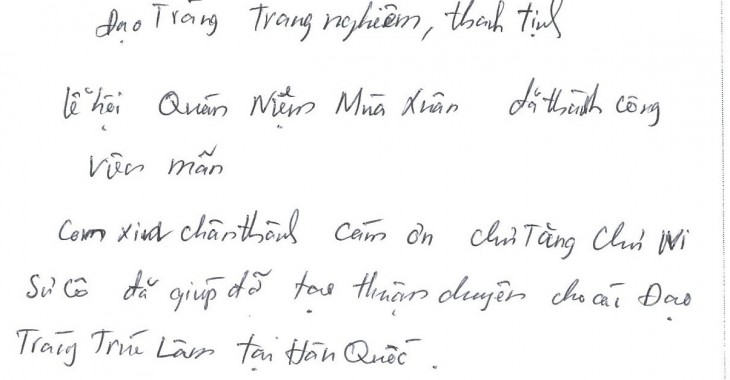 Đạo Tràng Trang nghiêm, thanh tịnh
lễ hội Quán Niệm Mùa Xuân đã thành công
viên mãn
Con xin chân thành cám ơn chư Tăng Chư Ni
Sư Cô đã giúp đỡ tạo thuận duyên cho các Đạo
Tràng Trúc Lâm tại Hàn Quốc.